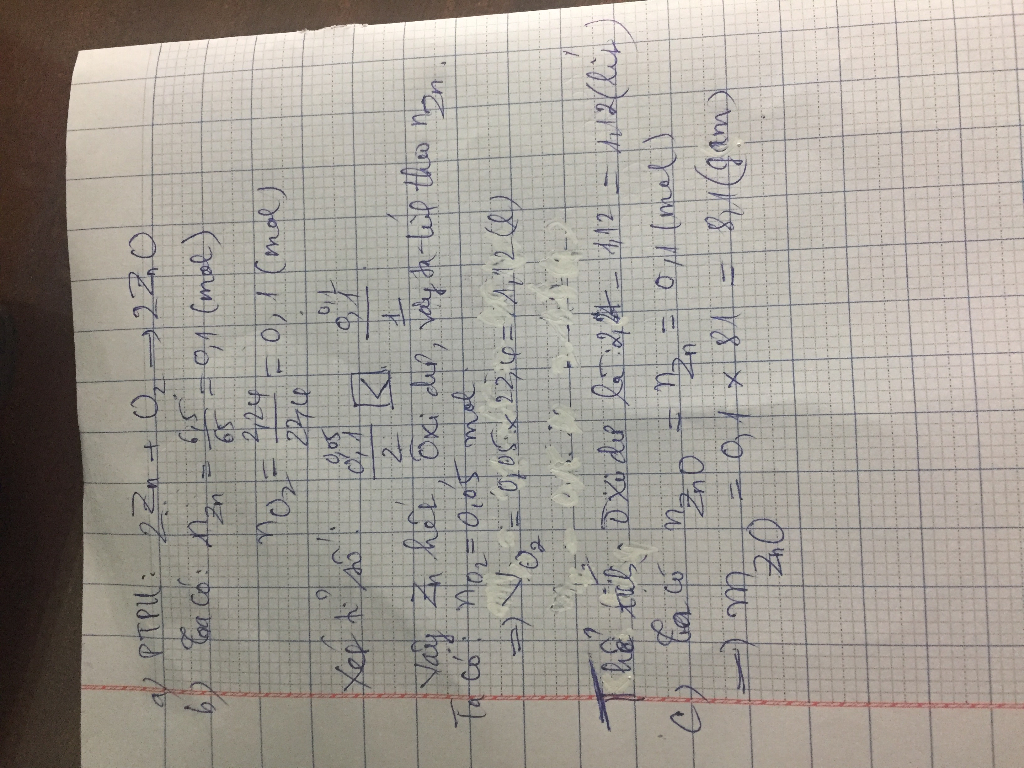 a) PTPƯ: 2Zn + O2 → 2ZnO
b) Ta có: nZn = 6,5/65 = 0,1 (mol)
nO2 = 2,24/22,4 = 0,1 (mol)
Xét tỉ số: 0,05 0,1/2 < 0,1 0,1/1
Vậy Zn hết, Oxi dư, vậy ta tính theo nZn.
Ta có: nO2 = 0,05 mol
=> VO2 = 0,05 x 22,4 = 1,12 (l)
Thể tích Oxi dư là: 2,24 - 1,12 = 1,12 (lít)
c) Ta có nZnO = nZn = 0,1 (mol)
=> mZnO = 0,1 x 81 = 8,1 (gam)